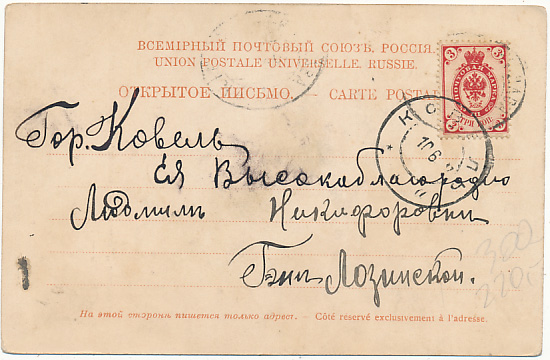 ВСЕМІРНЫЙ ПОЧТОВЫЙ СОЮЗЪ. РОССІЯ.
UNION POSTALE UNIVERSELLE. RUSSIE.
ОТКРЫТОЕ ПИСЬМО. – CARTE POSTALE
3 3
3 ТРИ КОП. 3
Гор. Ковель
Ея Высокаблагородію
Людмилѣ Никифоровнѣ
Лозинской.
На этой сторонѣ пишется только адрест. – Côté réservé exclusivement à l'adresse.